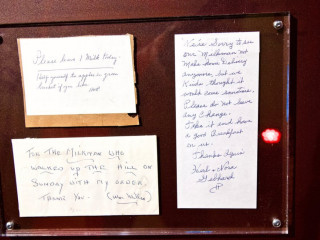 Please leave 1 Milk Today
Help yourself to apples in green
basket if you like
FOR THE MILKMAN WHO
WALKED UP THE HILL ON
SUNDAY WITH MY ORDER.
THANK YOU.
Sorry to see
our Milkman not
make Home Delivery
anymore, but we
Kinda thought it
would come sometime.
Please do not leave
any Change.
Take it and have
a good Breakfast
on us.
Thanks Again